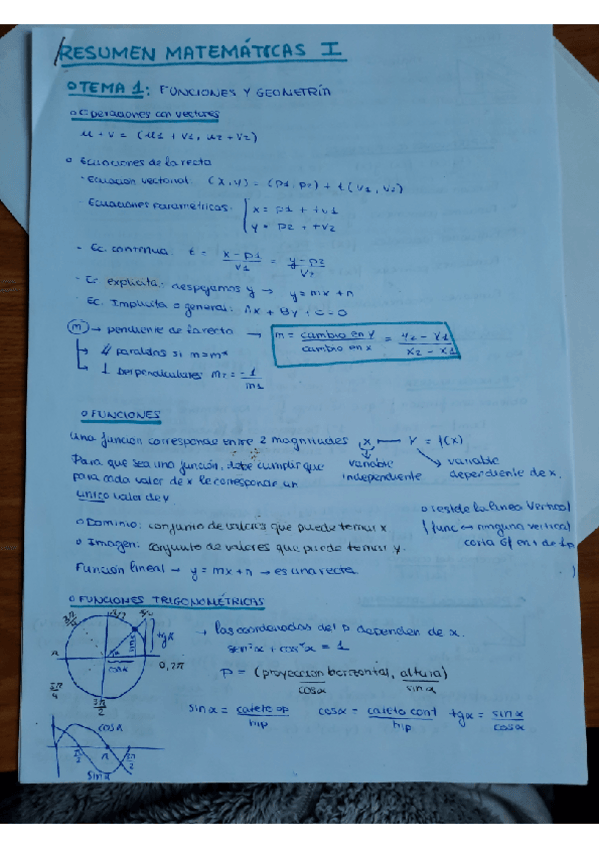 RESUMEN MATEMÁTICAS I
TEMA 1: FUNCIONES Y GEOMETRÍA
Operaciones con vectores
u + v = (u1 + v1, u2 + v2)
Ecuaciones de la recta
- Ecuación vectorial: (x, y) = (p1, p2) + t(v1, v2)
- Ecuaciones paramétricas: x = p1 + tv1
y = p2 + tv2
- Ec. continua: t = x - p1 / v1 = y - p2 / v2
- Ec explícita: despejamos y → y = mx + n
- Ec. Implícita o general: Ax + By + C = 0
m → pendiente de la recta → m = cambio en y / cambio en x = y2 - y1 / x2 - x1
→ // paralelas si m = m*
→ ⊥ perpendiculares m2 = -1 / m1
FUNCIONES
Una función corresponde entre 2 magnitudes x ⟼ y = f(x)
Para que sea una función, debe cumplir que
variable independiente
variable dependiente de x.
para cada valor de x le corresponde un
único valor de y
Test de la línea vertical
(func → ninguna vertical
corta Gf en + de 1p
)
Dominio: conjunto de valores que puede tomar x
Imagen: conjunto de valores que puede tomar y.
Función lineal → y = mx + n → es una recta.
FUNCIONES TRIGONOMÉTRICAS
→ las coordenadas del P dependen de x.
sen²x + cos²x = 1
P = (proyección horizontal, altura)
cosα sinα
sinα = cateto op / hip cosα = cateto cont / hip tgα = sinα / cosα
π/2
π
0, 2π
3π/2
tgα
sinα
cosα
cosα
π/2 π 3π/2
sinα